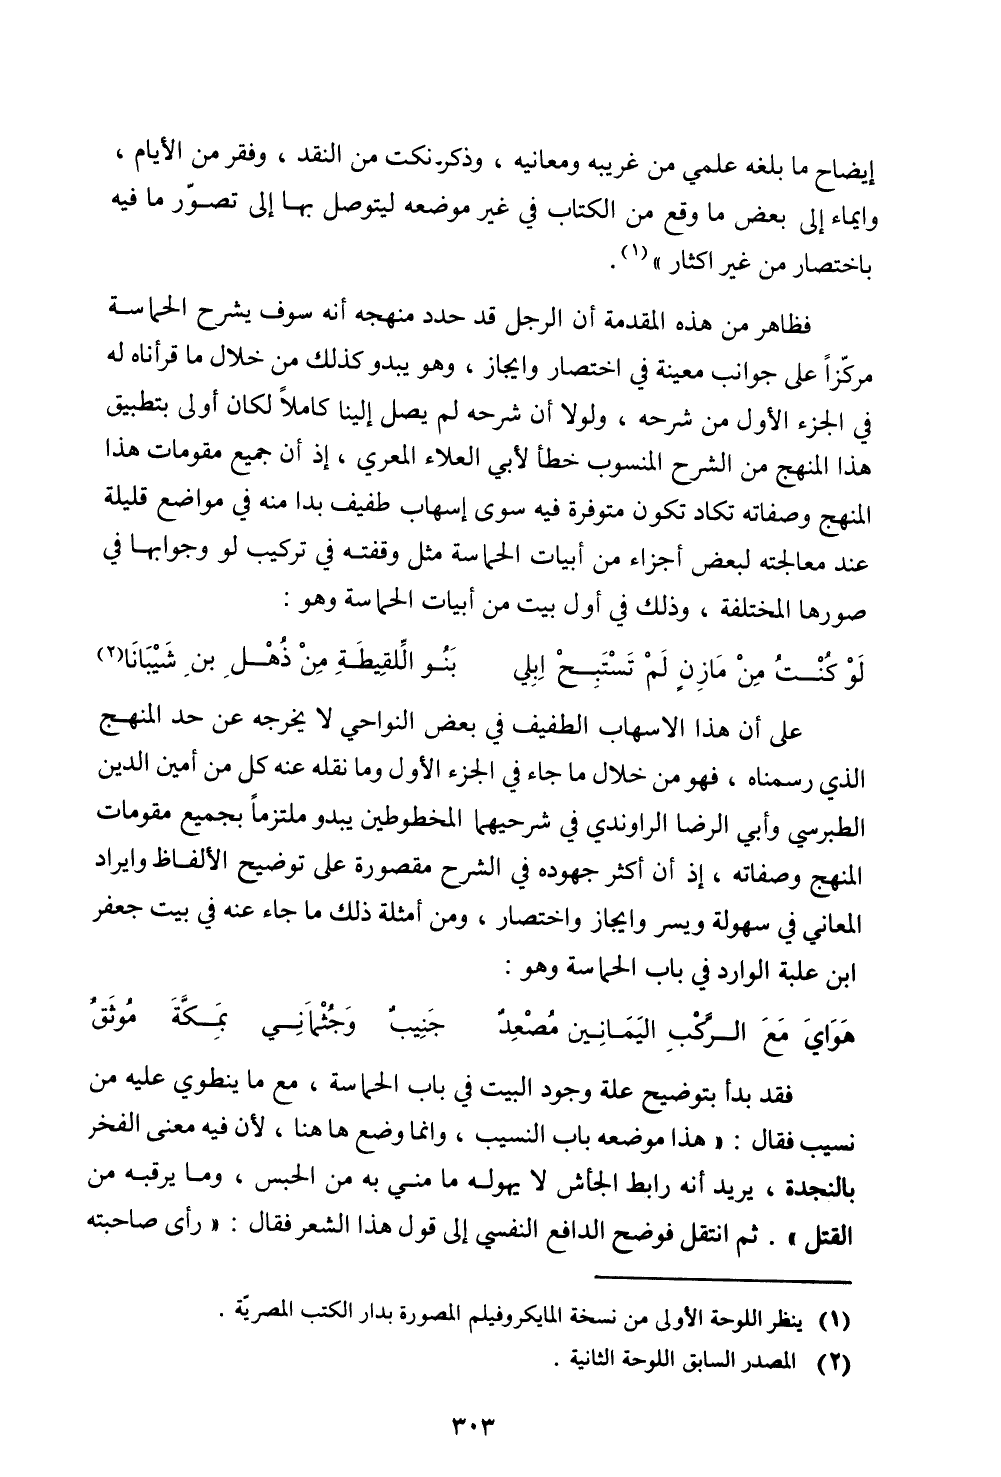 إيضاح ما بلغه علمي من غريبه ومعانيه ، وذكر نكت من النقد ، وفقر من الأيام ،
وايماء إلى بعض ما وقع من الكتاب في غير موضعه ليتوصل بهـا إلى تصـوّر ما فيه
باختصار من غير اكثار »(١) .
فظاهر من هذه المقدمة أن الرجل قد حدد منهجه أنه سوف يشرح الحماسـة
مركّزاً على جوانب معينة في اختصار وايجاز ، وهو يبدو كذلك من خلال ما قرأناه له
في الجزء الأول من شرحه ، ولولا أن شرحه لم يصل إلينا كاملاً لكان أولى بتطبيق
هذا المنهج من الشرح المنسوب خطأ لأبي العلاء المعري ، إذ أن جميع مقومات هذا
المنهج وصفاته تكاد تكون متوفرة فيه سوى إسهاب طفيف بدا منه في مواضع قليلة
عند معالجته لبعض أجزاء من أبيات الحماسة مثل وقفتـه في تركيب لو وجوابهـا في
صورها المختلفة ، وذلك في أول بيت من أبيات الحماسة وهو :
لَوْ كُنْـتُ مِنْ مَازِنٍ لَمْ تَسْتَبِـحْ اِبِلي بَنُـو الَّلقِيطَـةِ مِنْ ذُهْـلِ بنِ شَيْبَانَا(٢)
على أن هذا الاسهاب الطفيف في بعض النواحي لا يخرجه عن حد المنهـج
الذي رسمناه ، فهو من خلال ما جاء في الجزء الأول وما نقله عنه كل من أمين الدين
الطبرسي وأبي الرضا الراوندي في شرحيهما المخطوطين يبدو ملتزماً بجميع مقومات
المنهج وصفاته ، إذ أن أكثر جهوده في الشرح مقصورة على توضيح الألفـاظ وايراد
المعاني في سهولة ويسر وايجاز واختصار ، ومن أمثلة ذلك ما جاء عنه في بيت جعفر
ابن علبة الوارد في باب الحماسة وهو :
هَوَايَ مَعَ الـرَّكْبِ اليَمَـانِـين مُصْعِدٌ جَنِيبٌ وَجُثْمَانِـي بَمِـكَّةَ مُوثَقُ
فقد بدأ بتوضيح علة وجود البيت في باب الحماسة ، مع ما ينطوي عليه من
نسيب فقال : « هذا موضعه باب النسيب ، وانما وضع ها هنا ، لأن فيه معنى الفخر
بالنجدة ، يريد أنه رابط الجأش لا يهولـه ما منـي به من الحبس ، ومـا يرقبـه من
القتل » . ثم انتقل فوضح الدافع النفسي إلى قول هذا الشعر فقال : « رأى صاحبته
(١) ينظر اللوحة الأولى من نسخة المايكروفيلم المصورة بدار الكتب المصريّة .
(٢) المصدر السابق اللوحة الثانية .
٣٠٣